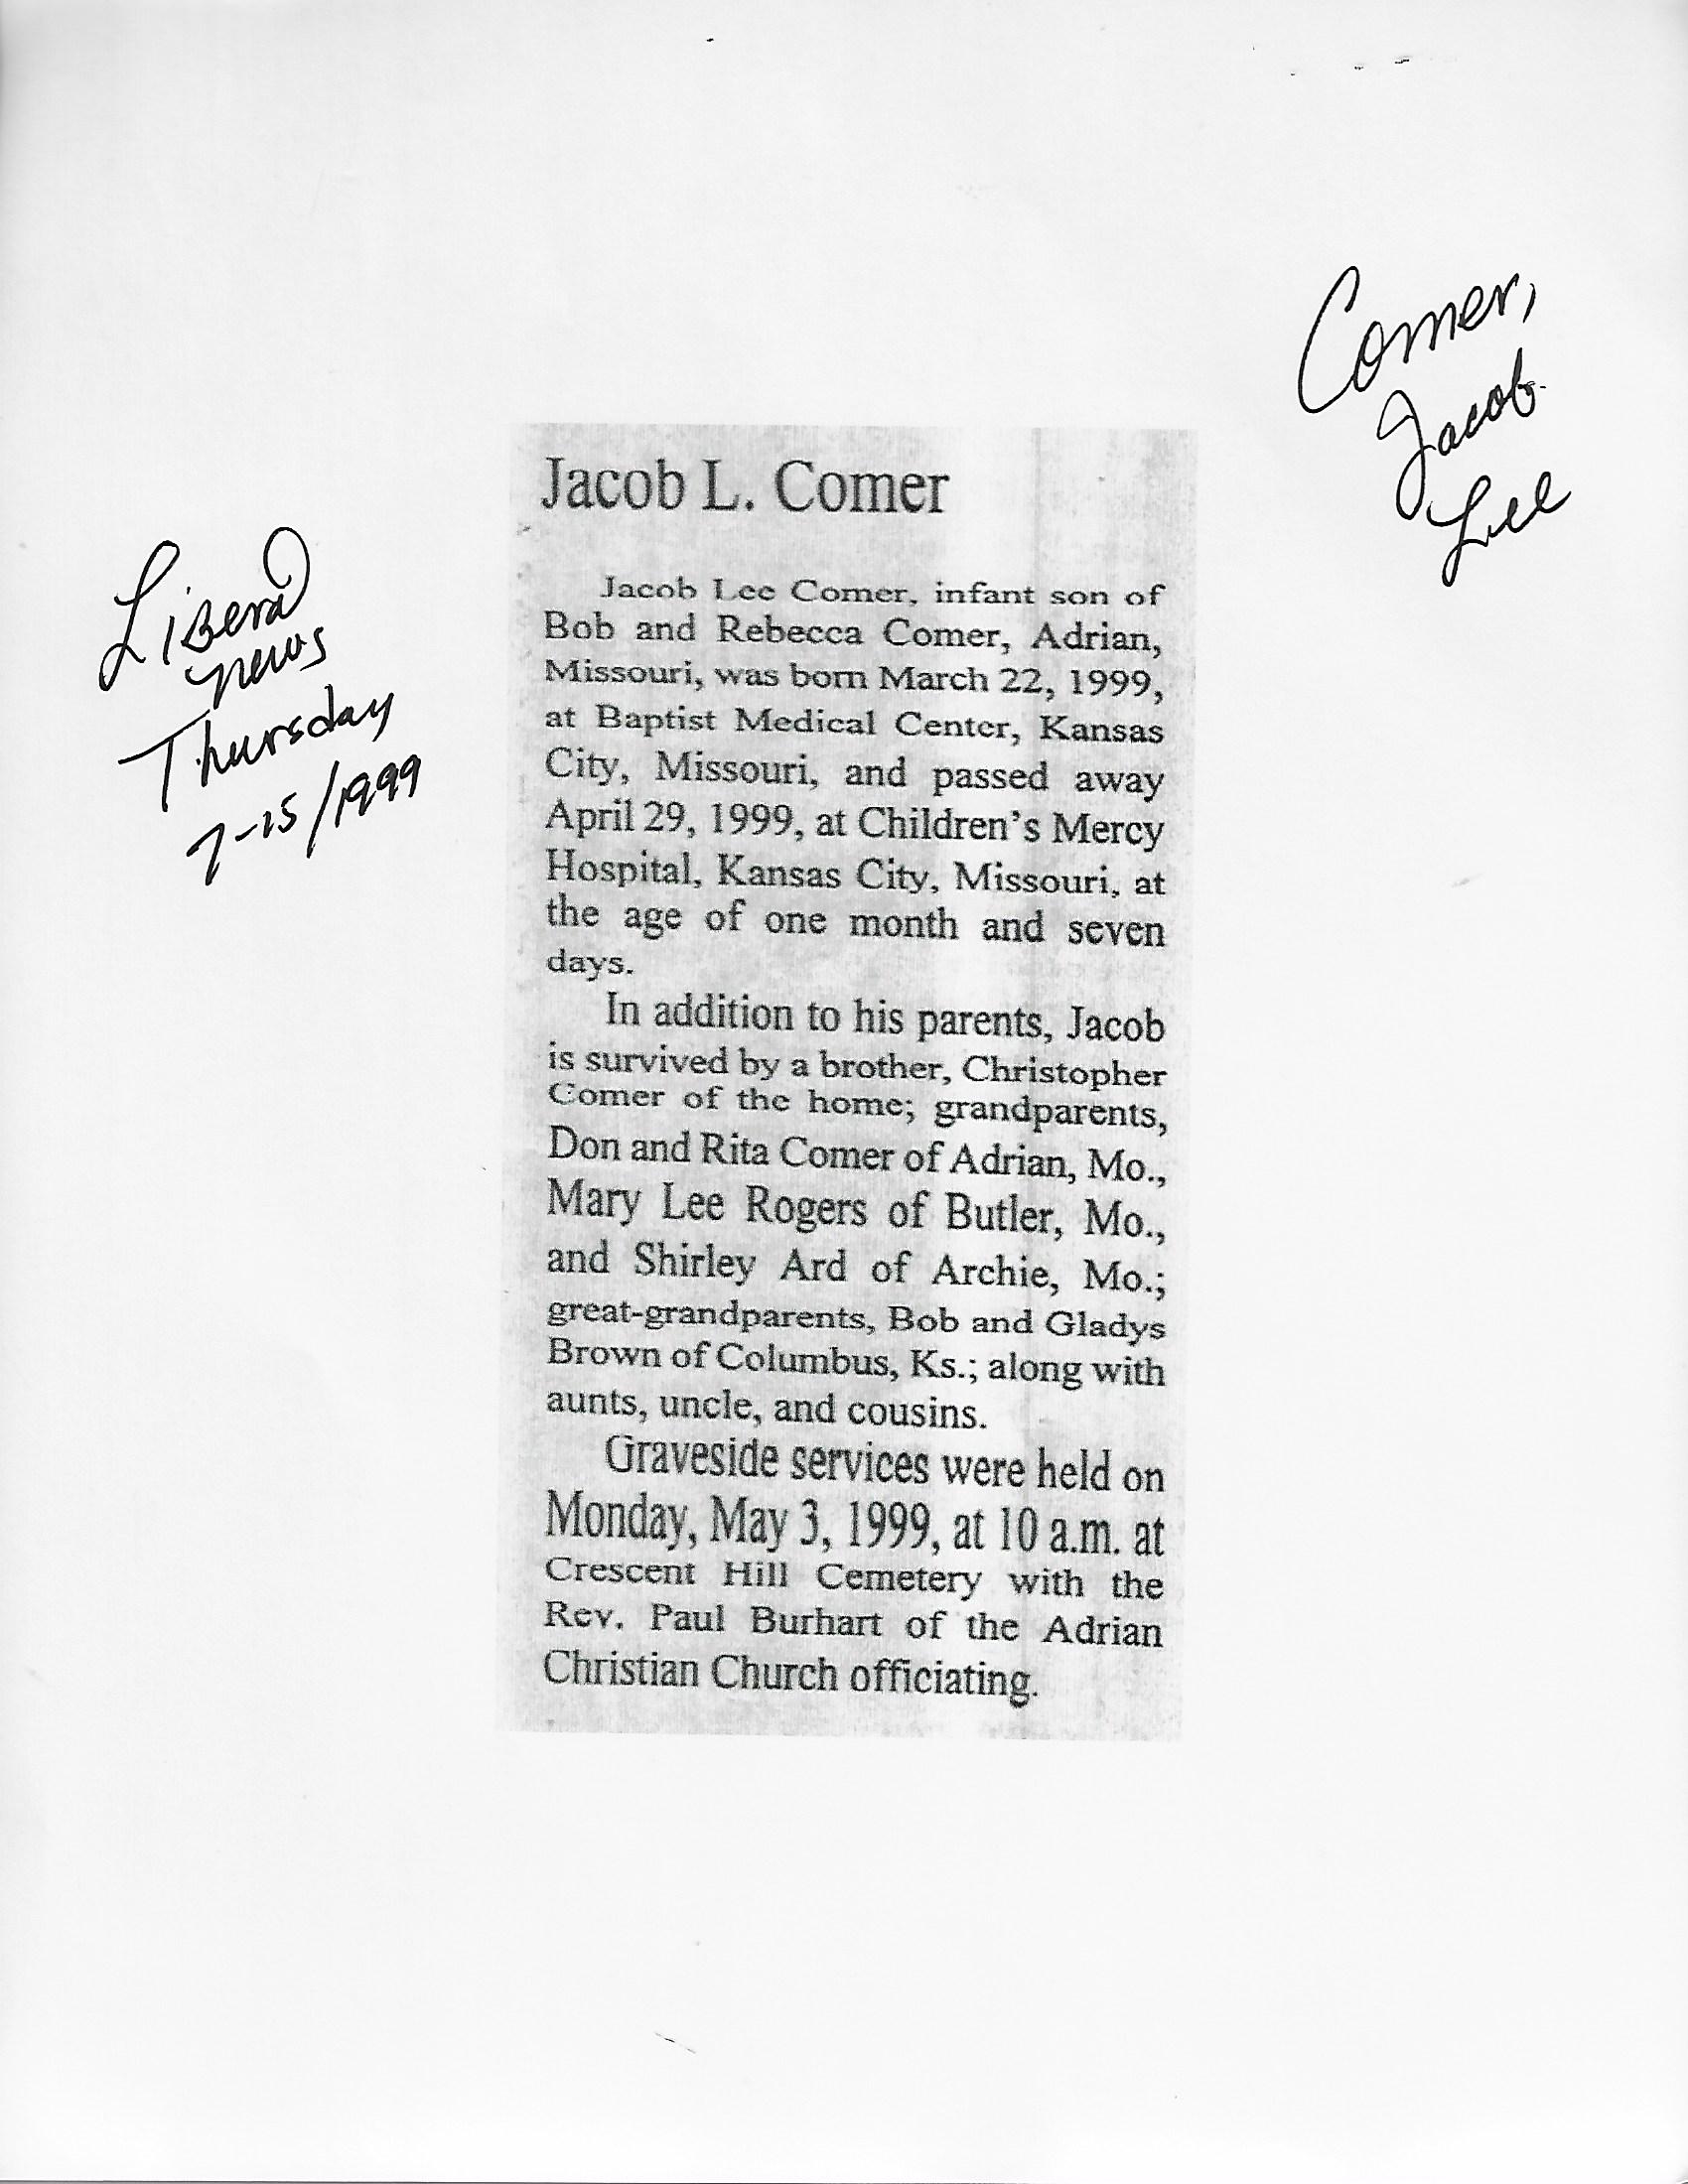 Comer,
Jacob
Lee
Liberal
news
Thursday
7-15/1999
Jacob L. Comer
Jacob Lee Comer, infant son of
Bob and Rebecca Comer, Adrian,
Missouri, was born March 22, 1999,
at Baptist Medical Center, Kansas
City, Missouri, and passed away
April 29, 1999, at Children's Mercy
Hospital, Kansas City, Missouri, at
the age of one month and seven
days.
In addition to his parents, Jacob
is survived by a brother, Christopher
Comer of the home; grandparents,
Don and Rita Comer of Adrian, Mo.,
Mary Lee Rogers of Butler, Mo.,
and Shirley Ard of Archie, Mo.;
great-grandparents, Bob and Gladys
Brown of Columbus, Ks.; along with
aunts, uncle, and cousins.
Graveside services were held on
Monday, May 3, 1999, at 10 a.m. at
Crescent Hill Cemetery with the
Rev. Paul Burhart of the Adrian
Christian Church officiating.